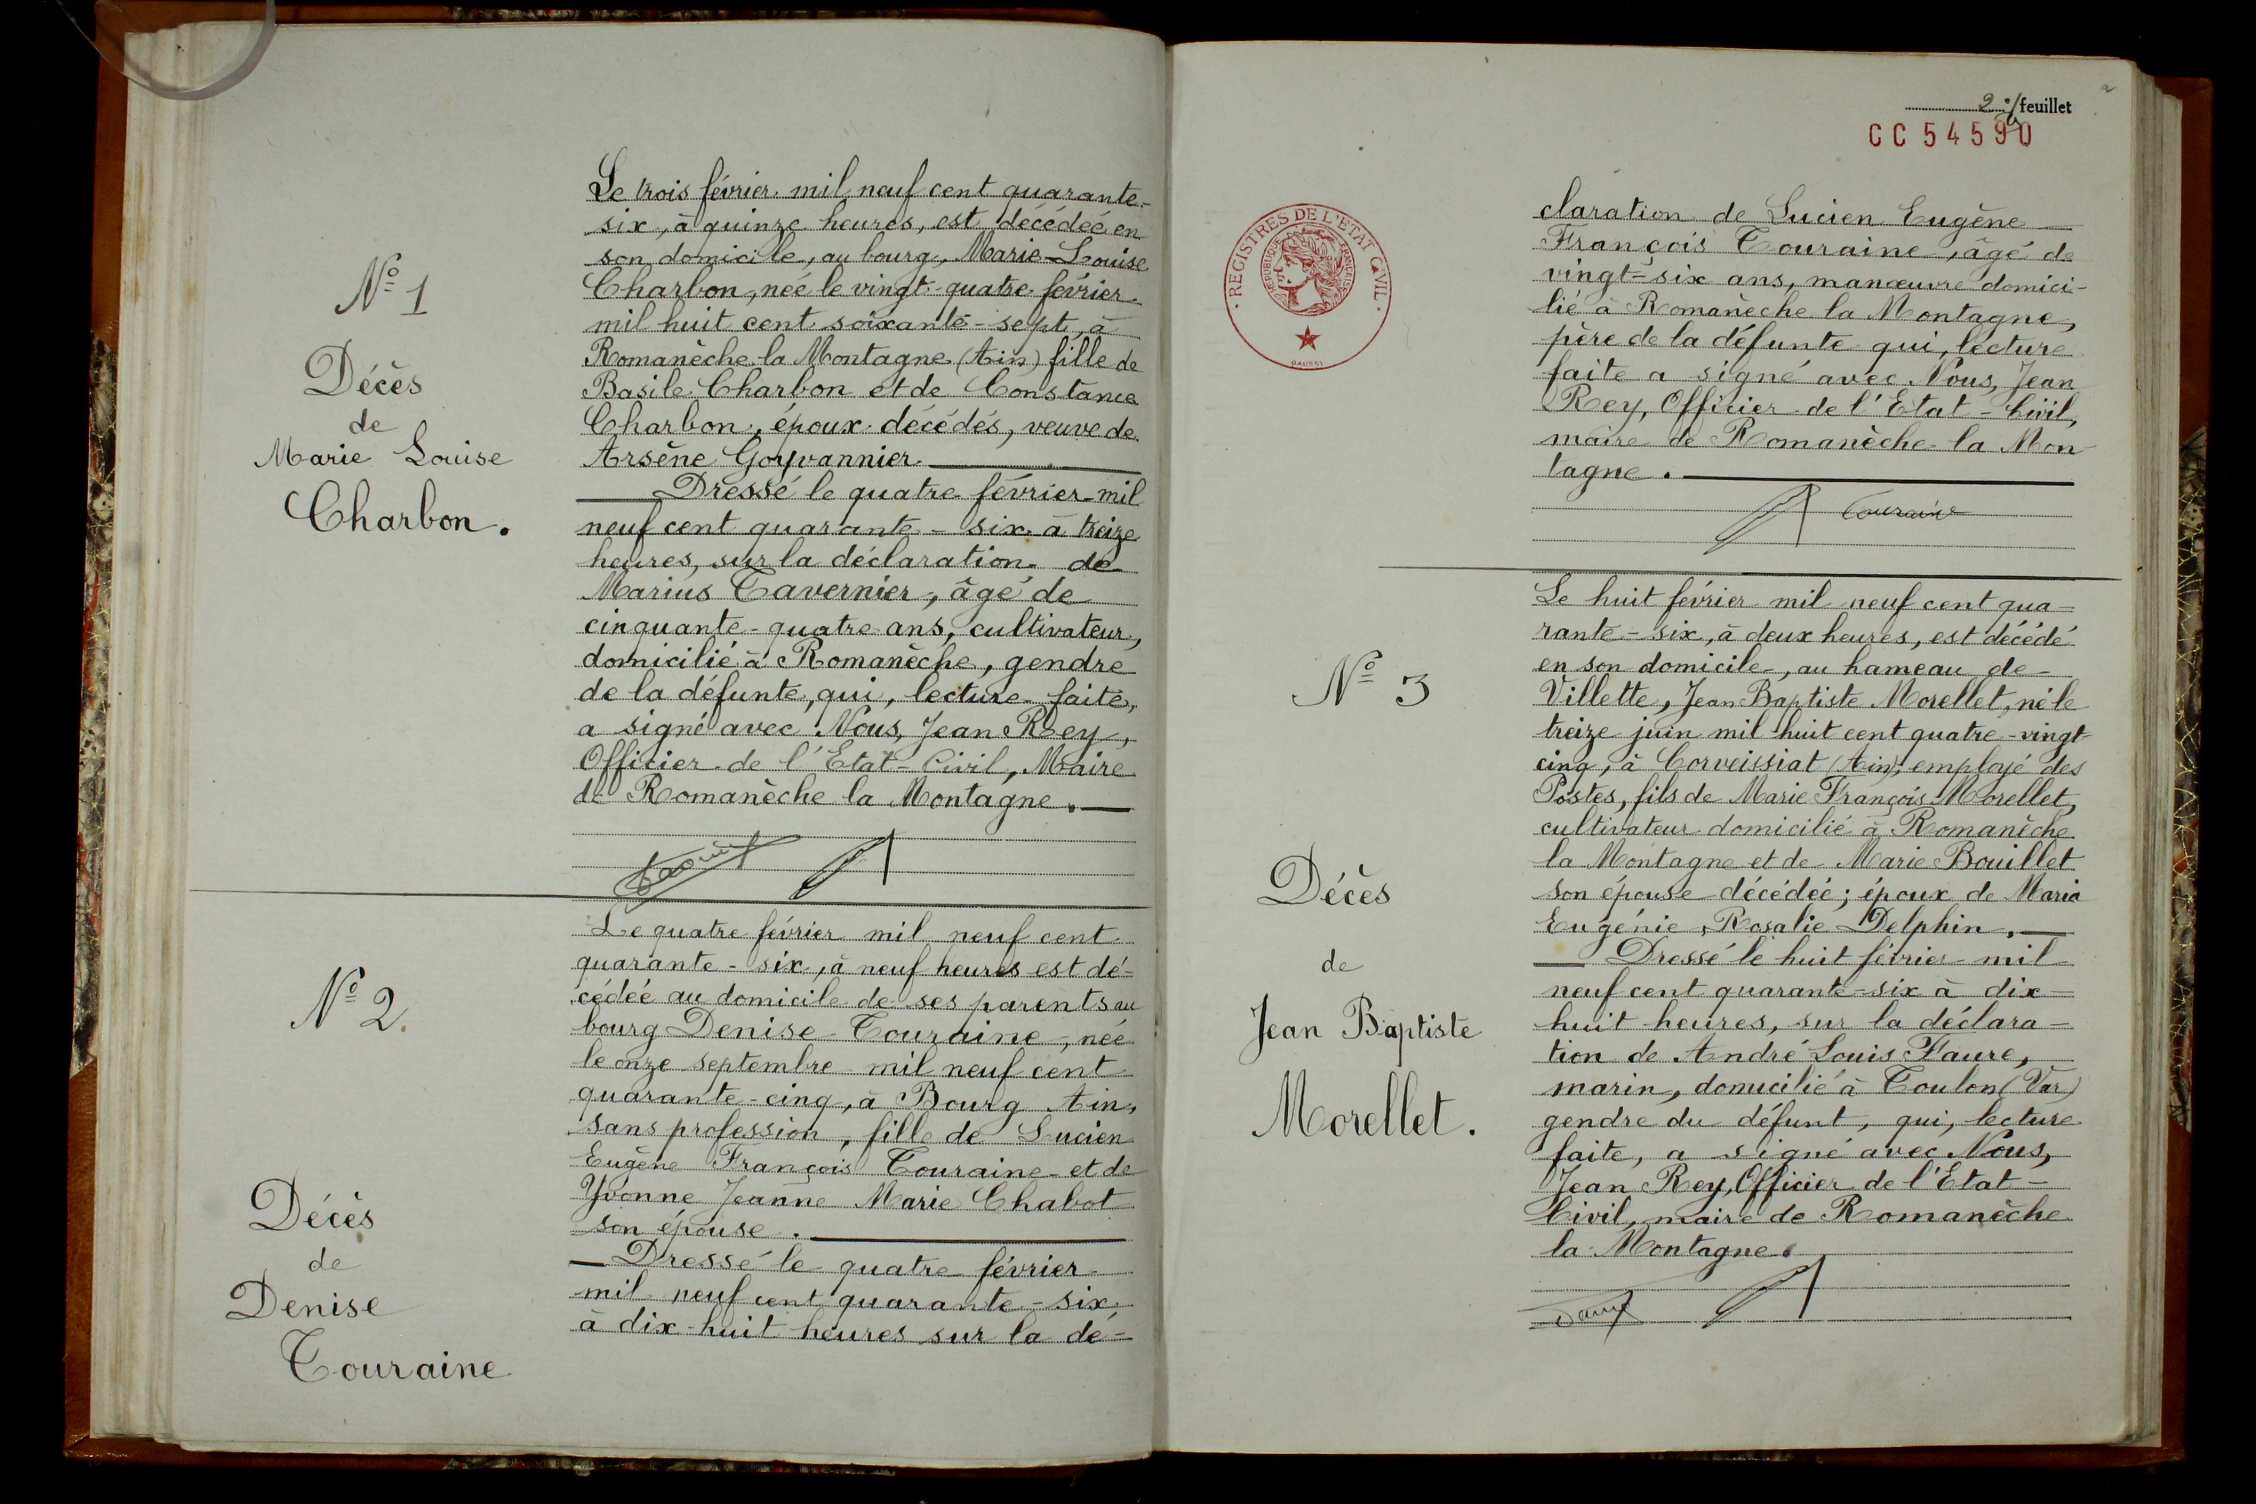 Nº 1
Décès
de
Marie Louise
Charbon.
Le trois février mil neuf cent quarante-
six, à quinze heures, est décédée en
son domicile, au bourg, Marie-Louise
Charbon, née le vingt-quatre février
mil huit cent soixante-sept, à
Romanèche-la Montagne (Ain) fille de
Basile Charbon et de Constance
Charbon, époux décédés, veuve de
Arsène Goyvannier.
Dressé le quatre février mil
neuf cent quarante-six à treize
heures, sur la déclaration de
Marius Tavernier, âgé de
cinquante-quatre ans, cultivateur,
domicilié à Romanèche, gendre
de la défunte, qui, lecture faite,
a signé avec Nous, Jean Rey,
Officier de l'Etat-Civil, Maire
de Romanèche la Montagne.
Nº 2.
Décès
de
Denise
Touraine
Le quatre février mil neuf cent
quarante-six, à neuf heures est dé-
cédée au domicile de ses parents au
bourg Denise Touraine, née
le onze septembre mil neuf cent
quarante-cinq, à Bourg Ain,
sans profession, fille de Lucien
Eugène François Touraine et de
Yvonne Jeanne Marie Chabot
son épouse.
Dressé le quatre février
mil neuf cent quarante-six,
à dix-huit heures sur la dé-
2 feuillet
CC 54590
REGISTRES DE L'ETAT CIVIL
REPUBLIQUE FRANÇAISE
claration de Lucien Eugène
François Touraine, âgé de
vingt-six ans, manœuvre domici-
lié à Romanèche la Montagne,
père de la défunte qui, lecture
faite a signé avec Nous, Jean
Rey, Officier de l'Etat-Civil,
maire de Romanèche-la Mon
tagne.
Touraine
Nº 3
Décès
de
Jean Baptiste
Morellet.
Le huit février mil neuf cent qua-
rante-six, à deux heures, est décédé
en son domicile, au hameau de
Villette, Jean Baptiste Morellet, né le
treize juin mil huit cent quatre-vingt-
cinq, à Corveissiat (Ain), employé des
Postes, fils de Marie François Morellet,
cultivateur domicilié à Romanèche
la Montagne et de Marie Bouillet
son épouse décédée; époux de Maria
Eugénie Rosalie Delphin.
Dressé le huit février mil
neuf cent quarante-six à dix-
huit heures, sur la déclara-
tion de André Louis Faure,
marin, domicilié à Toulon (Var)
gendre du défunt, qui, lecture
faite, a signé avec Nous,
Jean Rey, Officier de l'Etat-
Civil, maire de Romanèche
la Montagne.